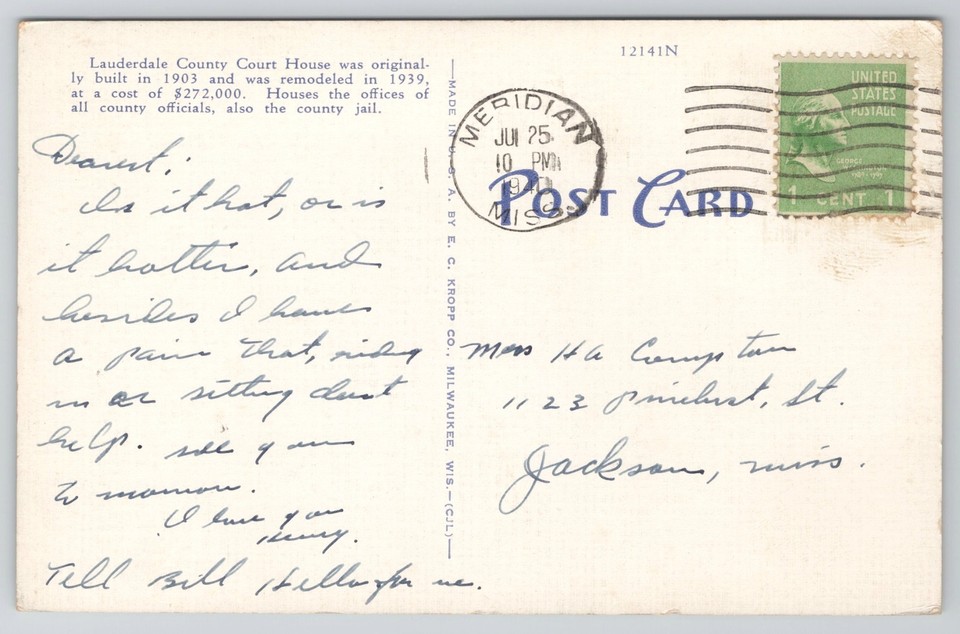 Lauderdale County Court House was original-
ly built in 1903 and was remodeled in 1939,
at a cost of $272,000. Houses the offices of
all county officials, also the county jail.
12141N
MADE IN U. S. A. BY E. C. KROPP CO., MILWAUKEE, WIS.—(CJL)
MERIDIAN
JUL 25
10 PM
194
MISS
POST CARD
UNITED
STATES
POSTAGE
GEORGE
1 CENT 1
Dearest;
Is it hot, or is
it hotter, and
besides I have
a pain that, riding
in or sitting dont
help. see you
to morrow.
I love you
Henry.
Tell Bill Hello for me.
Mrs H A Compton
1123 Pinehurst, St.
Jackson, Miss.